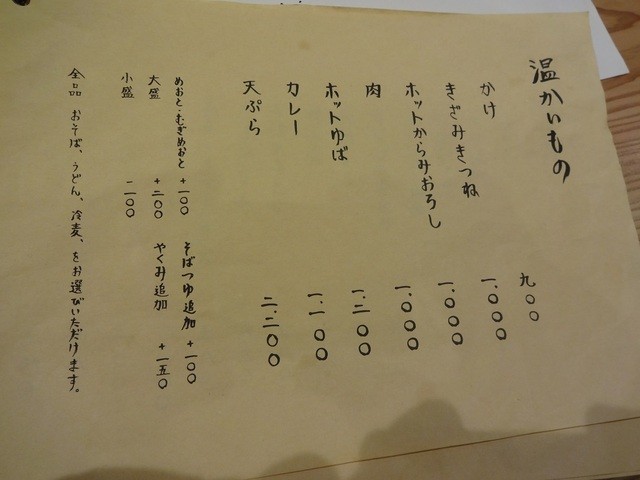 温かいもの
かけ 九〇〇
きざみきつね 一.〇〇〇
ホットからみおろし 一.〇〇〇
肉 一.〇〇〇
ホットゆば 一.二〇〇
カレー 一.一〇〇
天ぷら 二.二〇〇
めおと・むぎめおと +一〇〇 そばつゆ追加 +一〇〇
大盛 +二〇〇 やくみ追加 +一五〇
小盛 -一〇〇
全品 おそば、うどん、冷麦、をお選びいただけます。